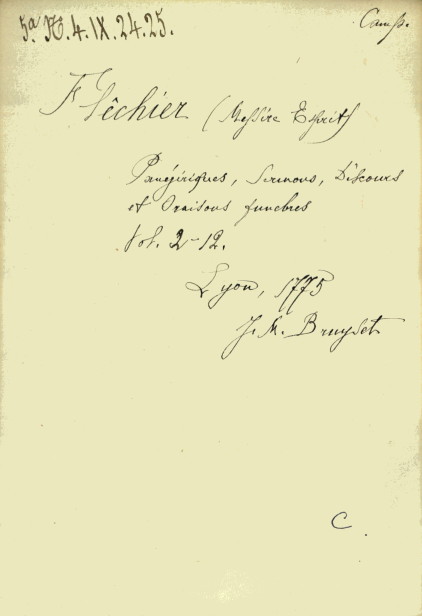 5ª N. 4. IX. 24. 25.
Camp.
Fléchier (Messire Esprit)
Panégiriques, Sermons, Discours
et Oraisons funebres
Vol. 2-12.
Lyon, 1775
J. M. Bruyset
C.